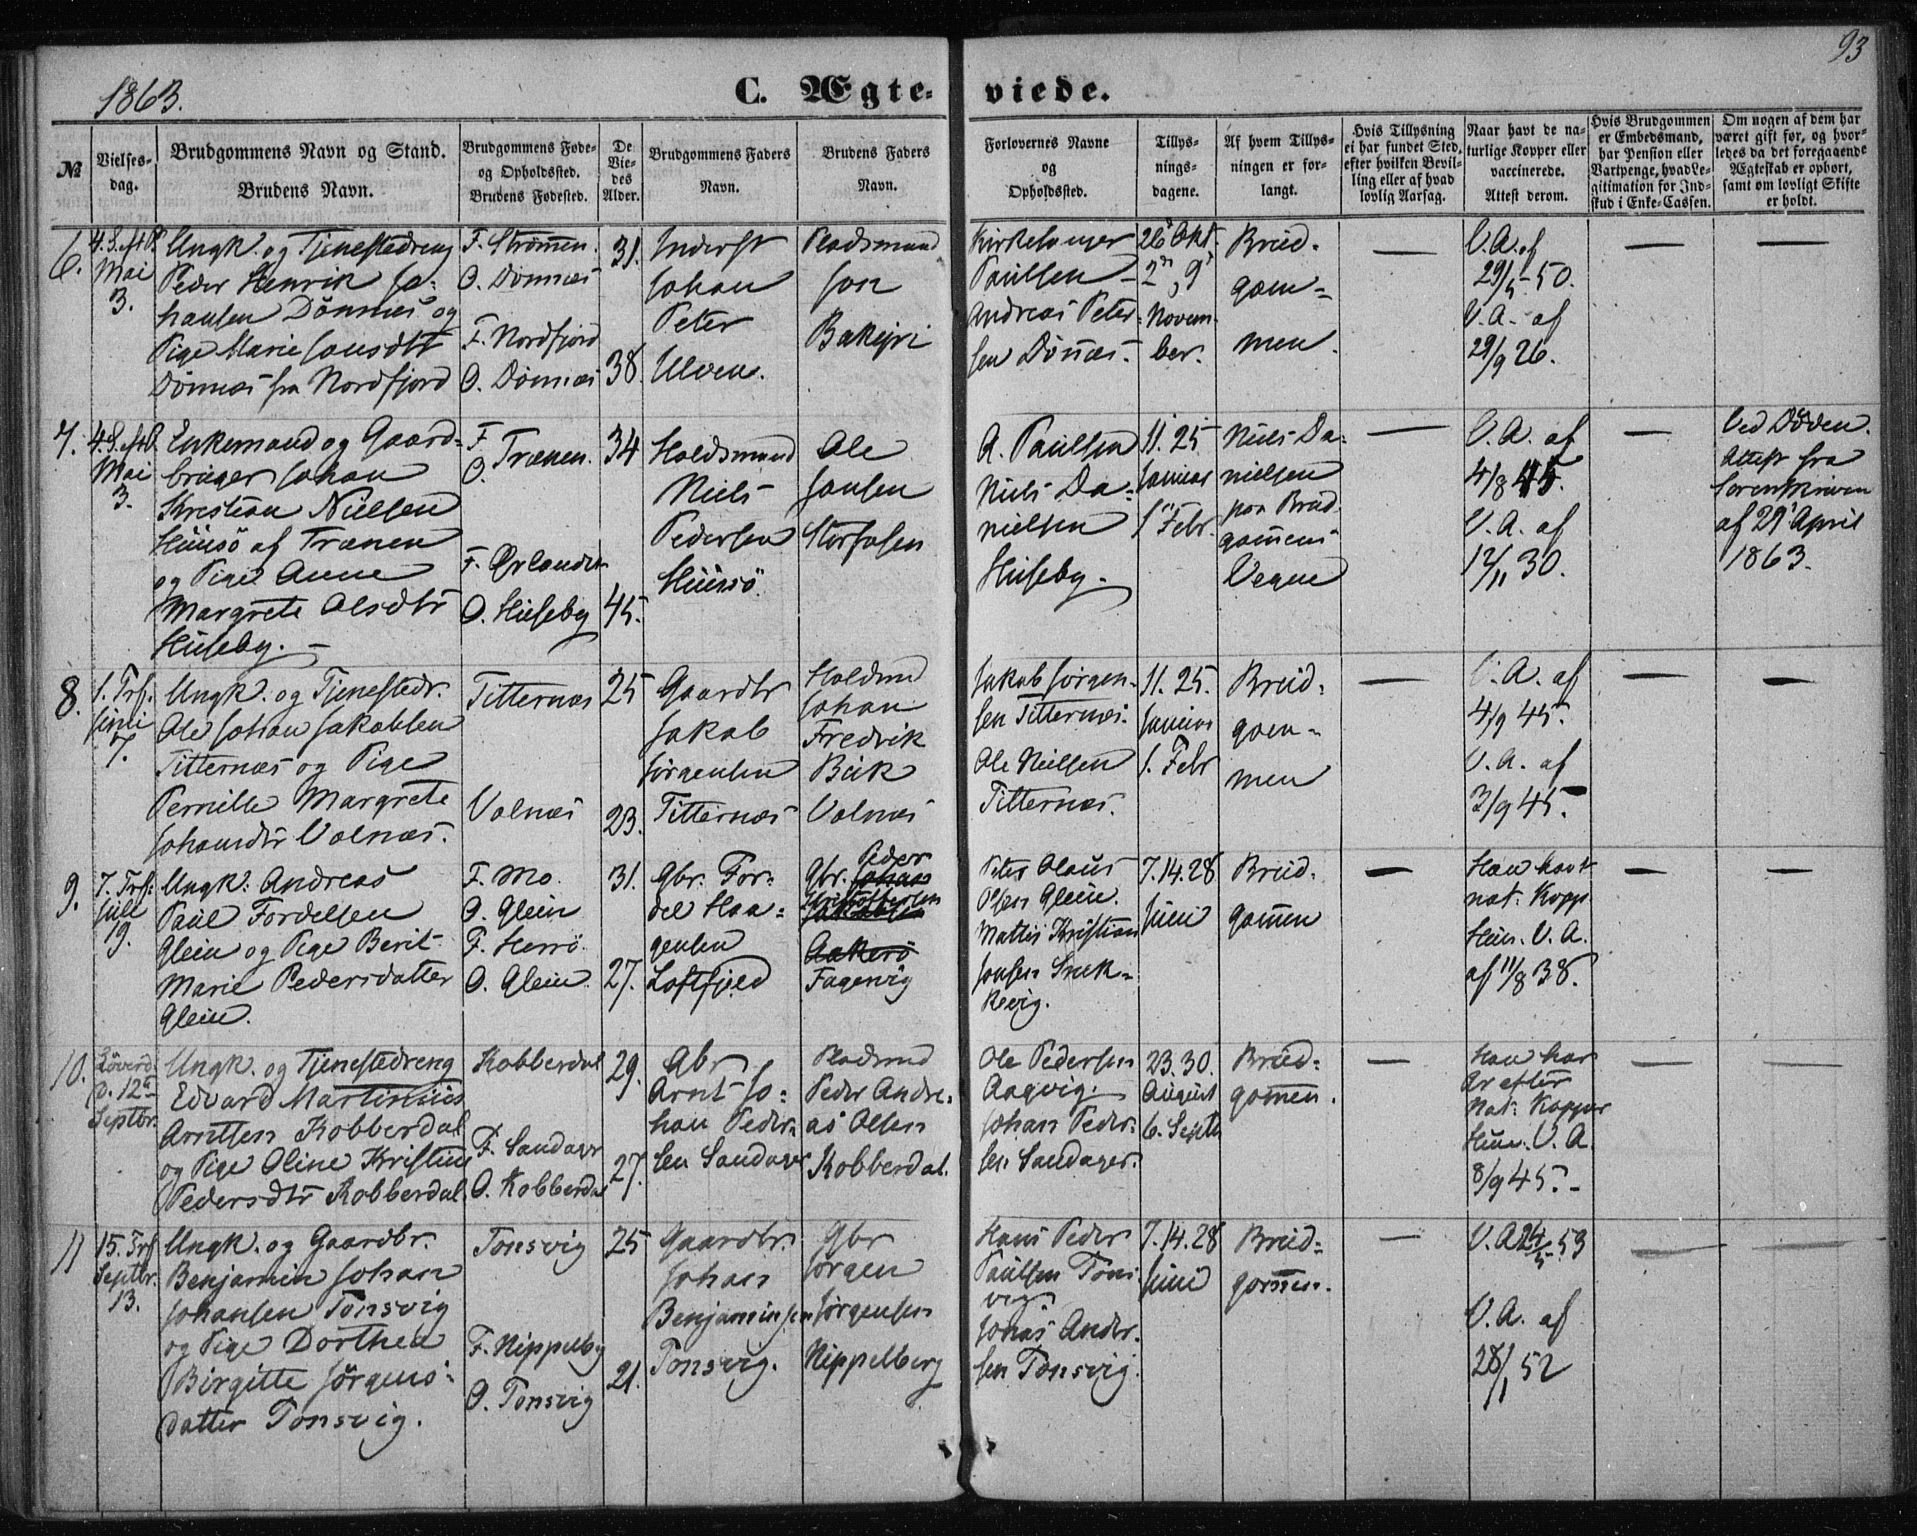 93
1863.
C. Ægteviede.
№
Vielses-
dag.
Brudgommens Navn og Stand.
Brudens Navn.
Brudgommens Føde-
og Opholdssted.
Brudens Fødested.
De
Vie-
des
Alder.
Brudgommens Faders
Navn.
Brudens Faders
Navn.
Forlovernes Navne
og
Opholdssted.
Tillys-
nings-
dagene.
Af hvem Tillys-
ningen er for-
langt.
Hvis Tillysning
ei har fundet Sted,
efter hvilken Bevil-
ling eller af hvad
lovlig Aarsag.
Naar havt de na-
turlige Kopper eller
vaccinerede.
Attest derom.
Hvis Brudgommen
er Embedsmand,
har Pension eller
Vartpenge, hvad Le-
gitimation for Ind-
skud i Enke-Cassen.
Om nogen af dem har
været gift før, og hvor-
ledes da det foregaaende
Ægteskab er ophørt,
samt om lovligt Skifte
er holdt.
6.
Mai
3.
Ungk. og Tjenestedreng
Peder Henrik Jo-
hansen Dønnæs og
Pige Marie Jonsdtr
Dønnæs fra Nordfjord
F. Strømmen.
O. Dønnæs
F. Nordfjord
O. Dønnæs
31.
38.
Inderst
Johan
Peter
Ulven.
Pladsmand
Jon
Bakejri
Kirkesanger
Paulsen –
Andreas Peter-
sen Dønnæs.
26d Okt.
2n, 9d
Novem-
ber.
Brud-
gom-
men.
—
V. A. af
29/5 50.
V. A. af
29/9 26.
—
—
7.
Mai
3.
Enkemand og Gaard-
bruger Johan
Kristian Nielsen
Huusø af Trænen
og Pige Anne
Margrete Olsdtr
Huseby. –
F.
O. Trænen.
F. Ørlandet
O. Huseby
34
45.
Holdsmand
Niels
Pedersen
Huusø.
Ole
Jonsen
Storfosen
A. Paulsen
Niels Da-
nielsen
Huseby.
11. 25
Januar
1. Febr.
Niels Da-
nielsen
paa Brud-
gommens
Vegne
—
V. A. af
4/8 45.
V. A. af
12/11 30.
—
Ved Døden.
Attest fra
Sorenskriven
af 29. April
1863.
8.
1. Trf.
Juni
7.
Ungk. og Tjenestedr.
Ole Johan Jakobsen
Titternæs og Pige
Pernille Margrete
Johansdtr Valnæs.
Titternæs
Valnæs
25
23.
Gaardbr
Jakob
Jørgensen
Titternæs
Holdsmd
Johan
Fredrik
Beik
Valnæs
Jakob Jørgen-
sen Titternæs.
Ole Nielsen
Titternæs.
11. 25.
Januar
1. Febr
Brud-
gom-
men
—
V. A. af
4/9 45.
V. A. af
3/9 45.
—
—
9.
7. Trf:
Juli
19.
Ungk: Andreas
Paul Fordelsen
Glein og Pige Berit
Marie Pedersdatter
Glein.
F. Mo.
O. Glein
F. Herrø.
O. Glein.
31.
27.
Gbr. For-
del Haa-
gensen
Loftfjeld
Peder
Gbr. Johan
Kristoffersen
Jakobsen
Aakerø
Fagervig
Peter Olaus
Olsen Glein.
Mattis Kristian
Jonsen Snek-
kevig.
7. 14. 28
Juni
Brud-
gommen
—
Han havt
nat: Kopp.
Hun. V. A.
af 11/8 38.
—
—
10.
Løverd.
d. 12te
Septbr.
Ungk. og Tjenestedreng
Edvard Martinius
Arntsen Kobberdal
og Pige Oline Kristine
Pedersdtr Kobberdal.
Kobberdal
F. Sandager
O. Kobberdal
29.
27.
Gbr
Arnt Jo-
han Peder-
sen Sandager
Pladsmd
Peder Andre-
as Olsen
Kobberdal.
Ole Pedersen
Aagvig.
Johan Peder-
sen Sandager.
23. 30.
August
6. Septb
Brud-
gommen.
—
Han har
Ar efter
Nat: Kopper
Hun. V. A.
8/9 45. –
—
—
11
15. Trf
Septbr.
13.
Ungk. og Gaardbr.
Benjamin Johan
Johansen Tonsvig
og Pige Dorthea
Birgitte Jørgens-
datter Tonsvig.
Tonsvig
F. Nippelbg
O. Tonsvig
25
21.
Gaardbr.
Johan
Benjaminsen
Tonsvig.
Gbr
Jørgen
Jørgensen
Nippelberg
Hans Peder
Paulsen Tons-
vig.
Jonas Ander-
sen Tonsvig.
7. 14. 28
Juni
Brud-
gommen.
—
V. A 24/5 53
V. A. af
28/1 52
—
—